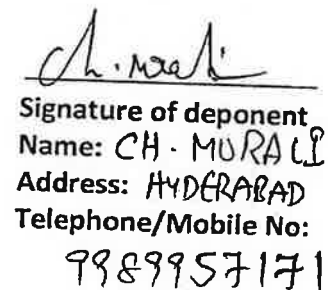 Ch. Murali
Signature of deponent
Name: CH. MURALI
Address: HYDERABAD
Telephone/Mobile No:
9989957171